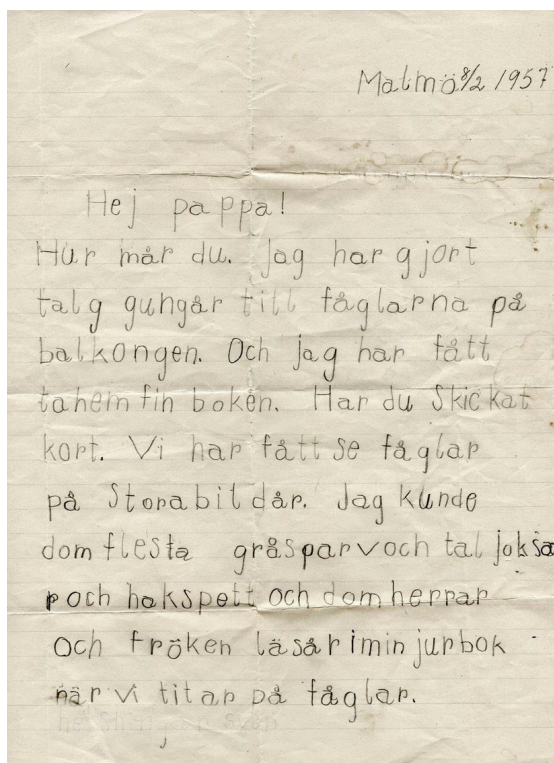 Malmö 8/2 1957
Hej pappa!
Hur mår du. jag har gjort
talg gungår till fåglarna på
balkongen. Och jag har fått
tahem fin boken. Har du Skickat
kort. Vi har fått se fåglar
på Stora bildår. Jag kunde
dom flesta gråsparv och tal joksa
r och hakspett och domherrar
Och fröken läsår i min jurbok
när vi titar på fåglar.